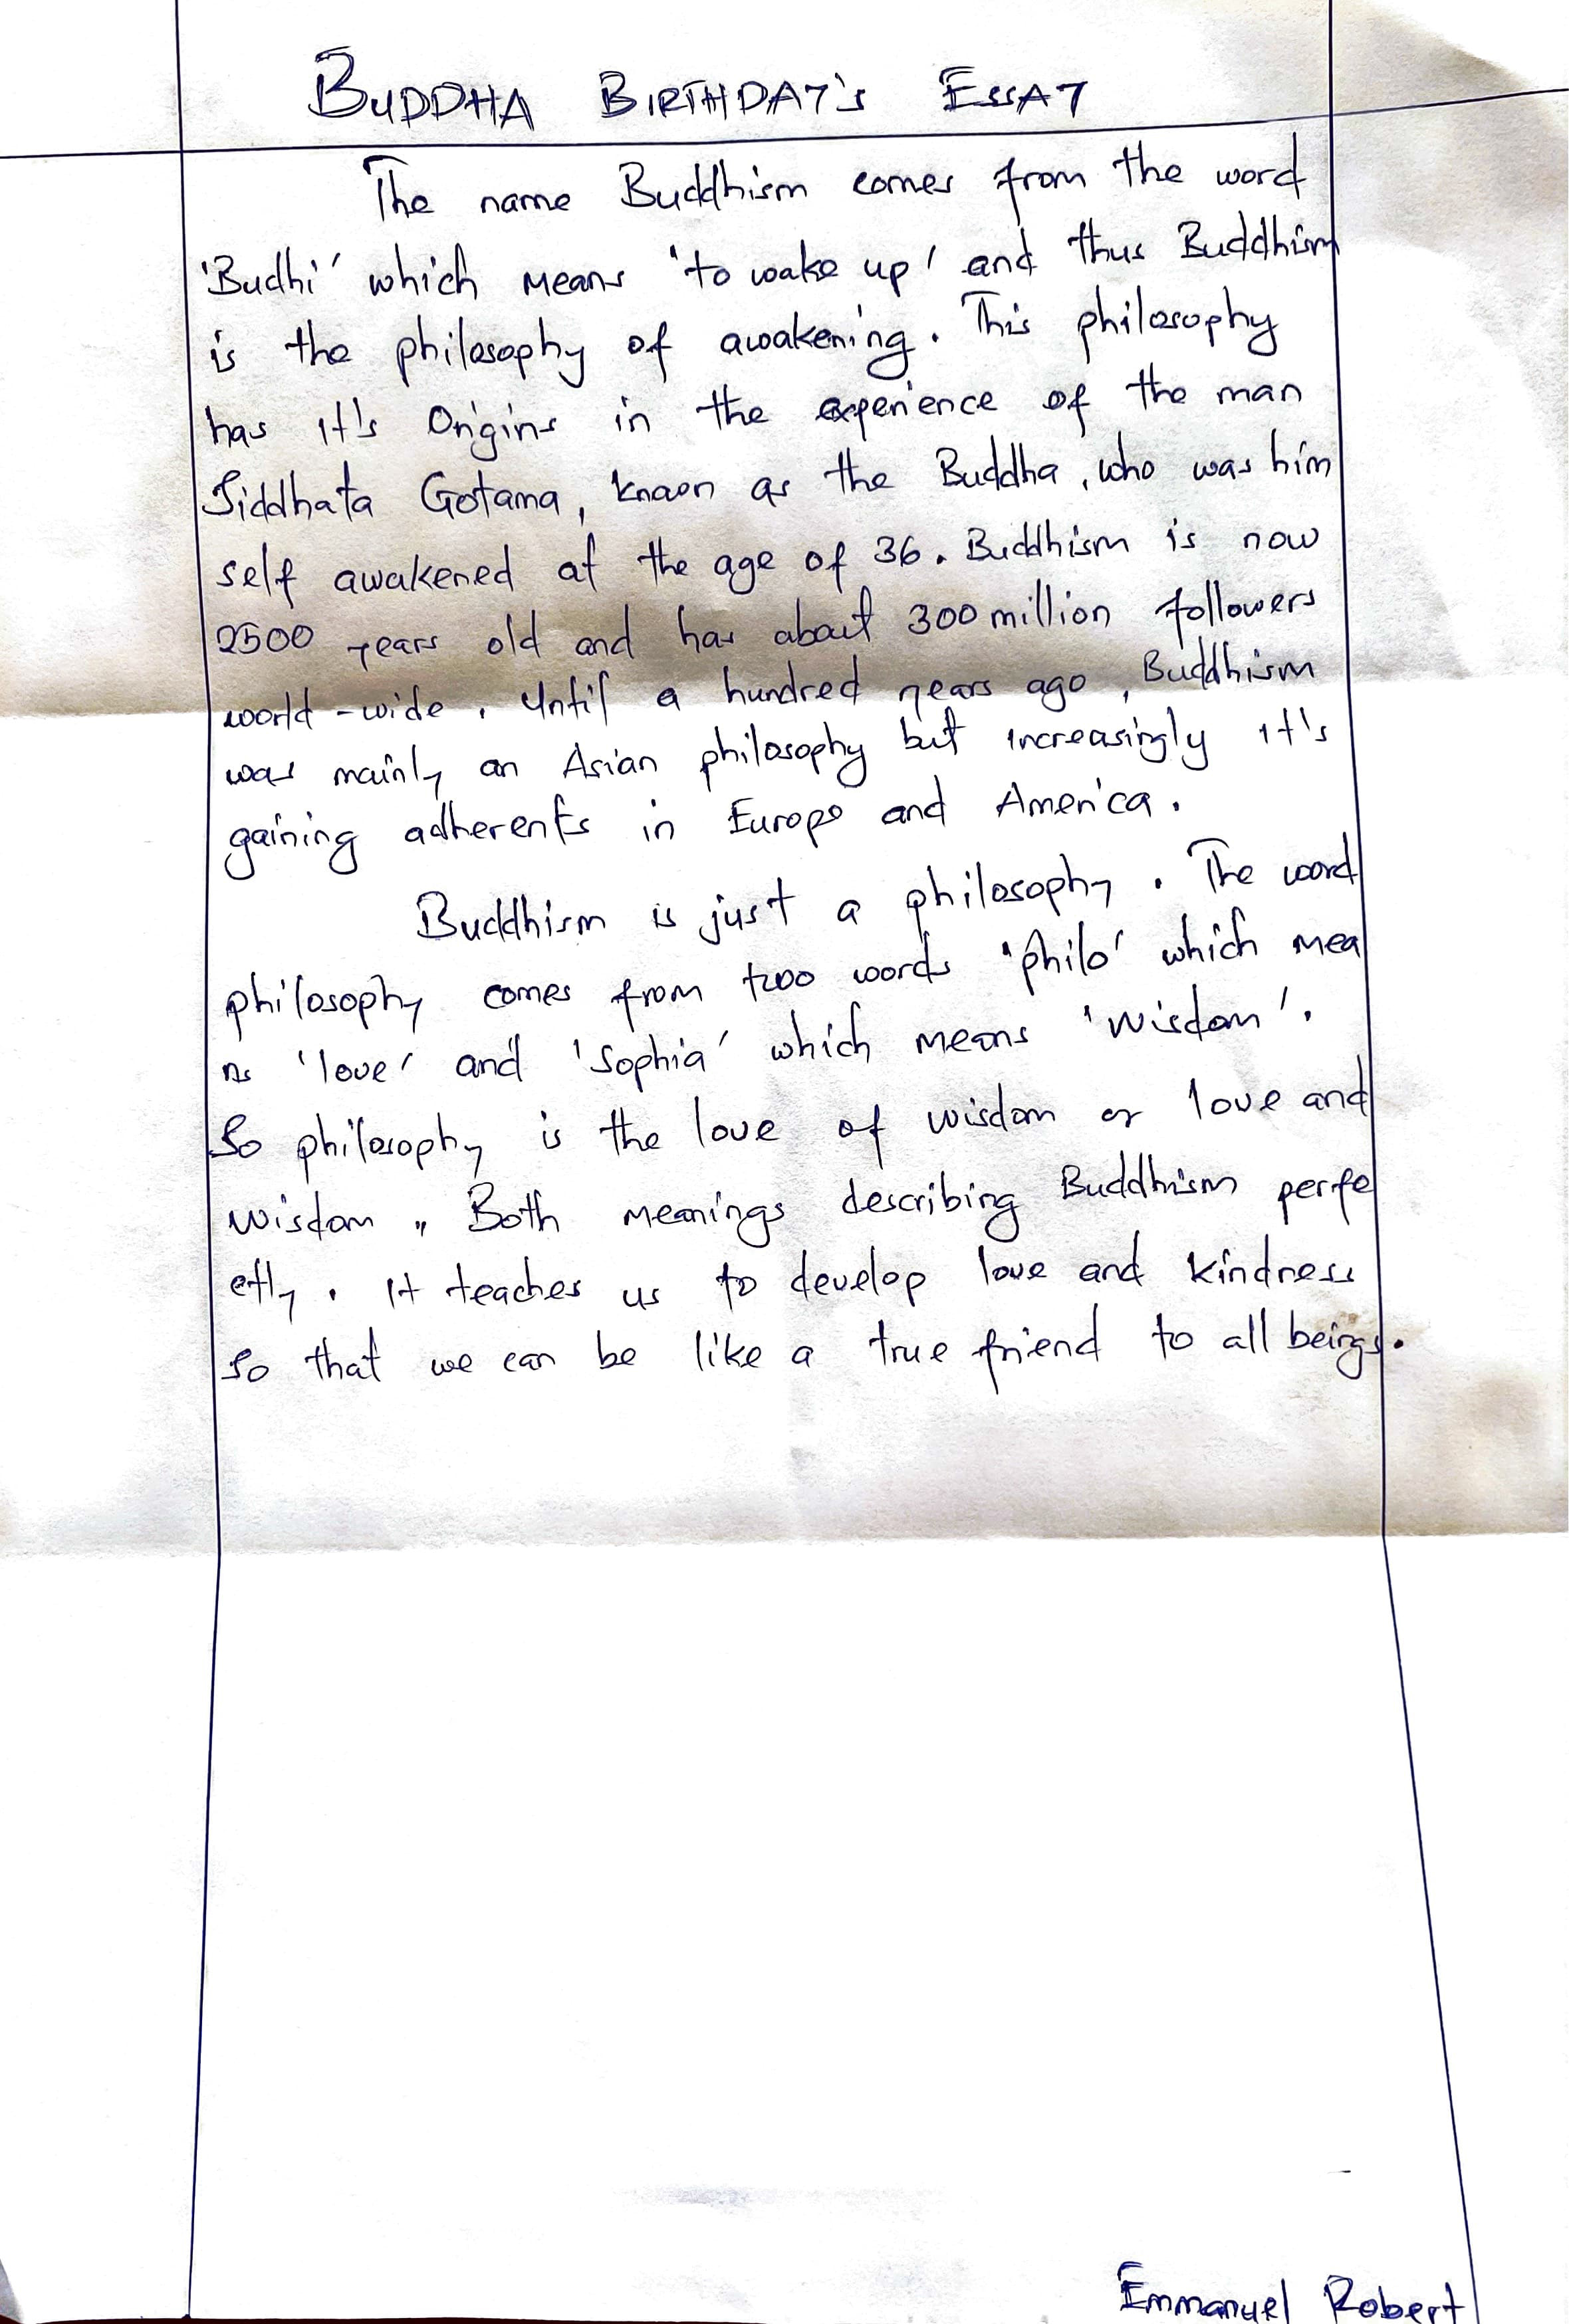 BUDDHA BIRTHDAY'S ESSAY
The name Buddhism comes from the word
'Budhi' which means 'to wake up' and thus Buddhism
is the philosophy of awakening. This philosophy
has it's Origins in the experience of the man
Siddhata Gotama, known as the Buddha, who was him
self awakened at the age of 36. Buddhism is now
2500 years old and has about 300 million followers
world-wide. Until a hundred years ago, Buddhism
was mainly an Asian philosophy but increasingly it's
gaining adherents in Europe and America.
Buddhism is just a philosophy. The word
philosophy comes from two words 'philo' which mea
ns 'love' and 'Sophia' which means 'wisdom'.
So philosophy is the love of wisdom or love and
wisdom, Both meanings describing Buddhism perfe
ctly. It teaches us to develop love and kindness
so that we can be like a true friend to all beings.
Emmanuel Robert